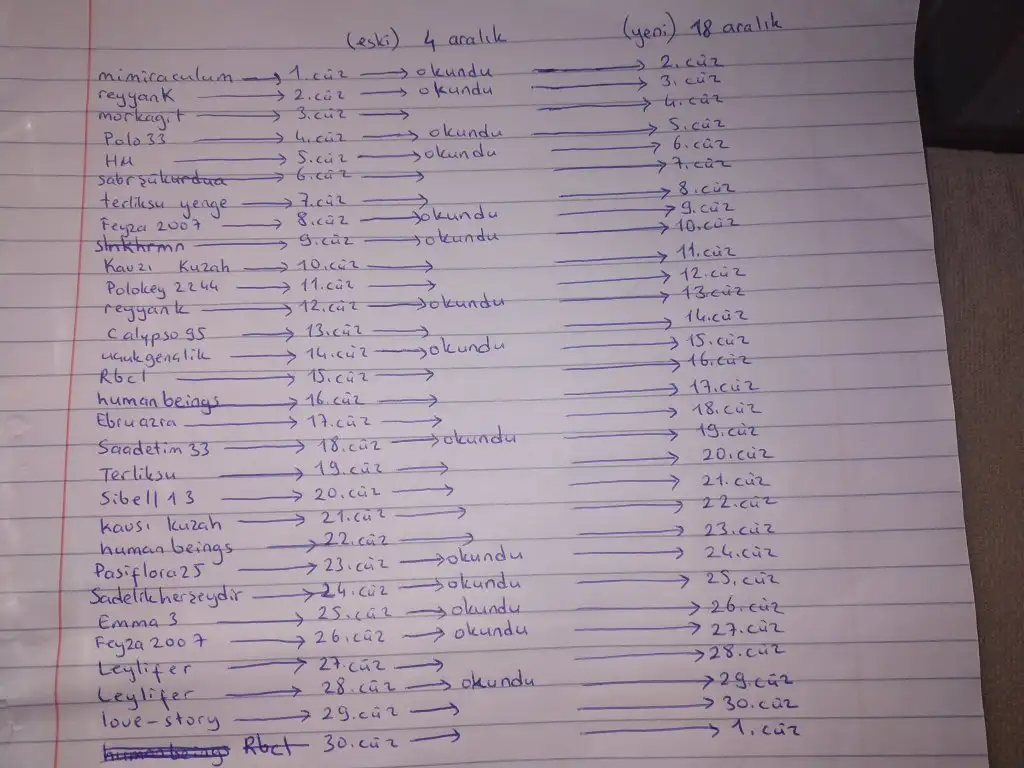 (eski) 4 aralık (yeni) 18 aralık
mimiraculum → 1.cüz → okundu → 2.cüz
reyyanK → 2.cüz → okundu → 3.cüz
morkagıt → 3.cüz → → 4.cüz
Polo33 → 4.cüz → okundu → 5.cüz
HH → 5.cüz → okundu → 6.cüz
sabrşükürdua → 6.cüz → → 7.cüz
terliksu yenge → 7.cüz → → 8.cüz
Feyza 2007 → 8.cüz → okundu → 9.cüz
slnkhrmn → 9.cüz → okundu → 10.cüz
Kavsı Kuzah → 10.cüz → → 11.cüz
Polokey 2244 → 11.cüz → → 12.cüz
reyyank → 12.cüz → okundu → 13.cüz
Calypso95 → 13.cüz → → 14.cüz
ucukgenclik → 14.cüz → okundu → 15.cüz
Rbct → 15.cüz → → 16.cüz
humanbeings → 16.cüz → → 17.cüz
Ebruazra → 17.cüz → → 18.cüz
Saadetim33 → 18.cüz → okundu → 19.cüz
Terliksu → 19.cüz → → 20.cüz
Sibell13 → 20.cüz → → 21.cüz
kavsı kuzah → 21.cüz → → 22.cüz
humanbeings → 22.cüz → → 23.cüz
Pasiflora25 → 23.cüz → okundu → 24.cüz
Sadelikherşeydir → 24.cüz → okundu → 25.cüz
Emma3 → 25.cüz → okundu → 26.cüz
Feyza 2007 → 26.cüz → okundu → 27.cüz
Leylifer → 27.cüz → → 28.cüz
Leylifer → 28.cüz → okundu → 29.cüz
love-story → 29.cüz → → 30.cüz
humanbeings Rbct → 30.cüz → → 1.cüz